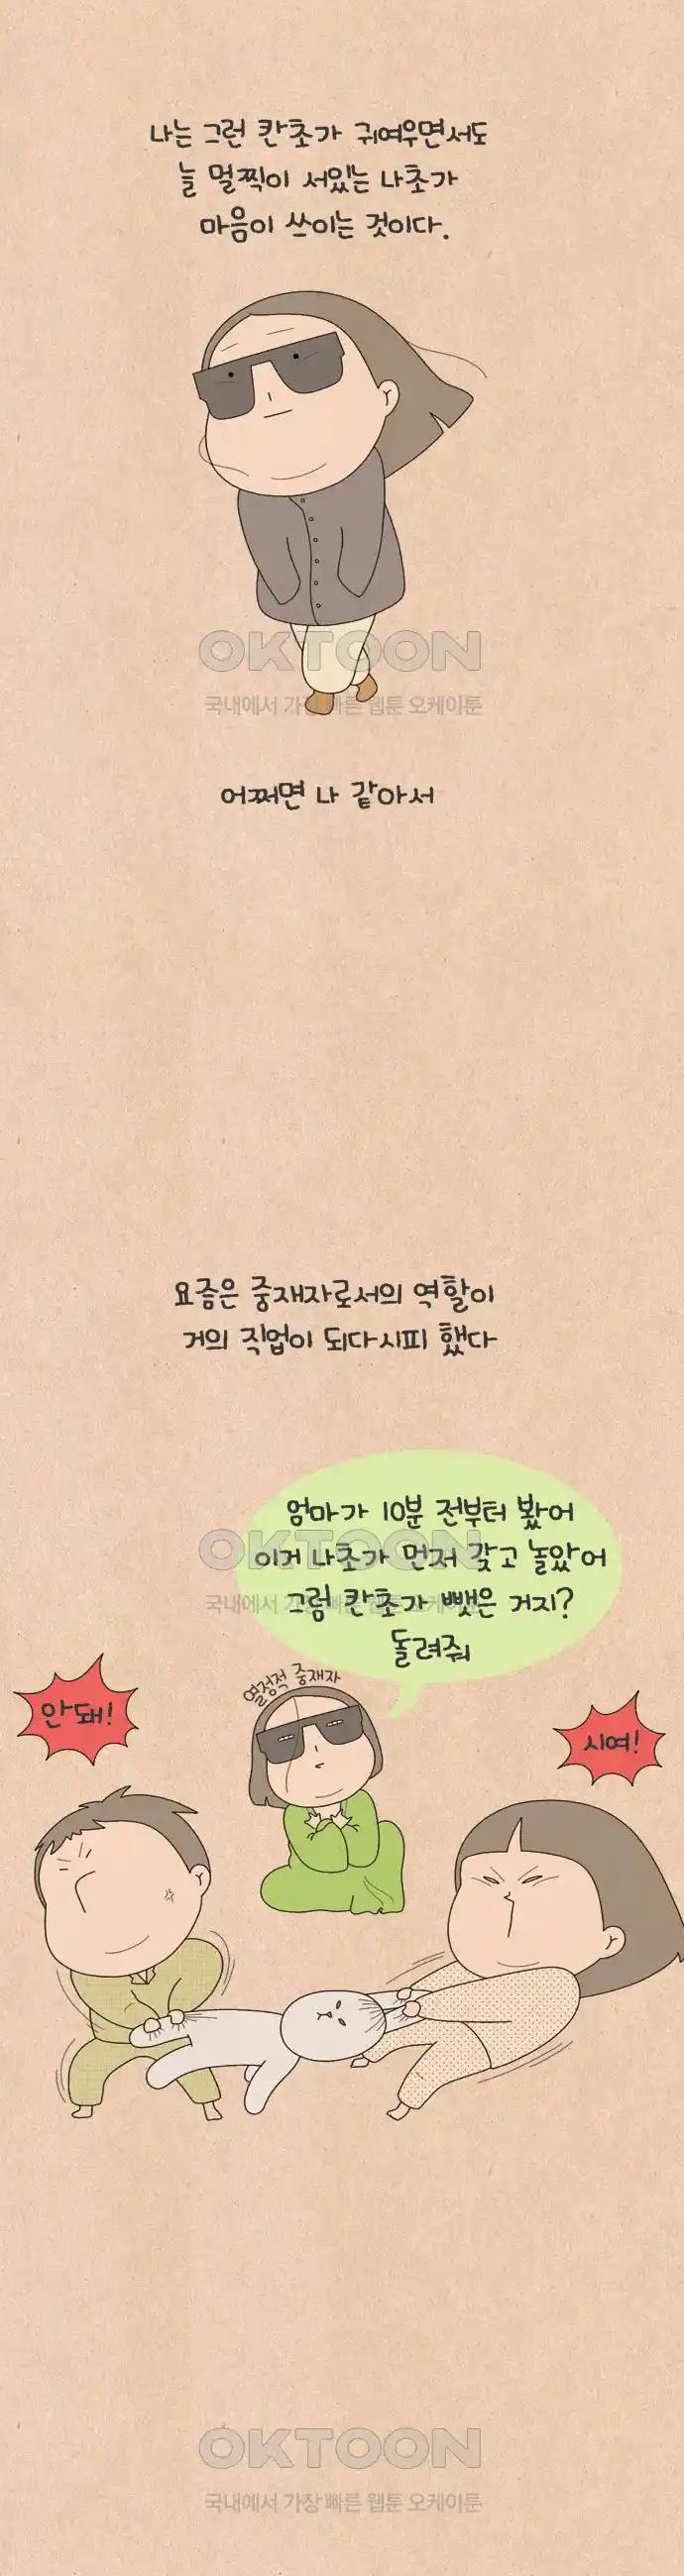 나는 그런 칸초가 귀여우면서도
늘 멀찍이 서있는 나초가
마음이 쓰이는 것이다.
OKTOON
국내에서 가장 빠른 웹툰 오케이툰
어쩌면 나 같아서
요즘은 중재자로서의 역할이
거의 직업이 되다시피 했다
엄마가 10분 전부터 봤어
OKTOON
이거 나초가 먼저 갖고 놀았어
국내에서 가장 빠른 웹툰 오케이툰
그럼 칸초가 뺏은 거지?
돌려줘
열정적 중재자
안돼!
시여!
OKTOON
국내에서 가장 빠른 웹툰 오케이툰